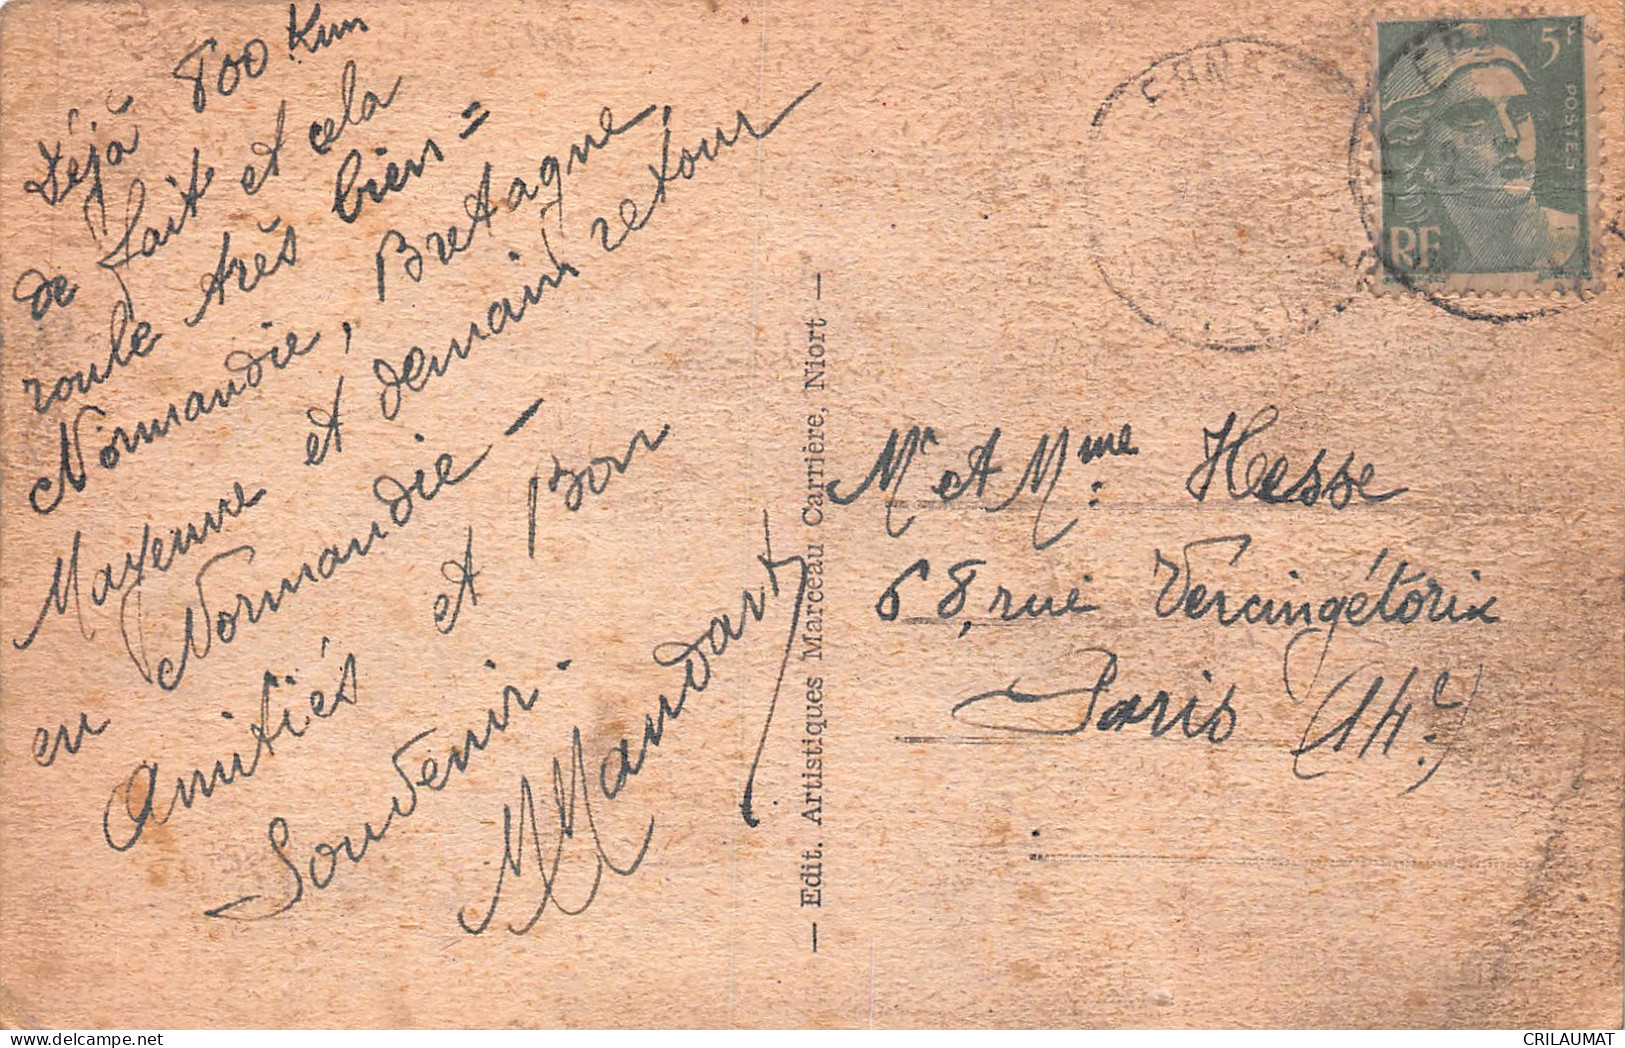 Déjà 800 Km
de fait et cela
roule très bien =
Normandie, Bretagne,
Mayenne et demain retour
en Normandie –
Amitiés et Bon
Souvenir.
Mandart
— Edit. Artistiques Marceau Carrière, Niort —
ERNE
5F
POSTES
RF
Mr et Mme Hesse
68, rue Vercingétorix
Paris (14e)
CRILAUMAT